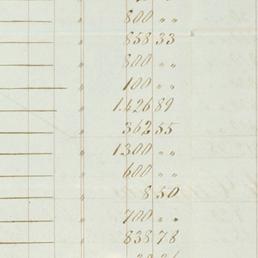 " 800 " "
" 858 33
" 800 " "
" 100 " "
" 1.426 89
" 362 55
" 1.300 " "
" 600 " "
" 8 50
" 700 " "
" 838 78